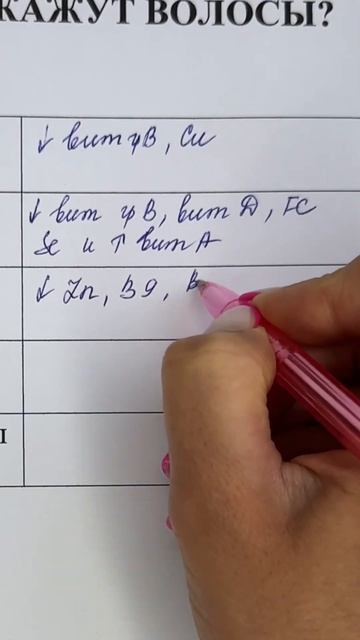 КАЖУТ ВОЛОСЫ?
↓ вит грВ, Cu
↓ вит грВ, вит Д, FC
Se и ↑ вит А
↓ Zn, В9, В